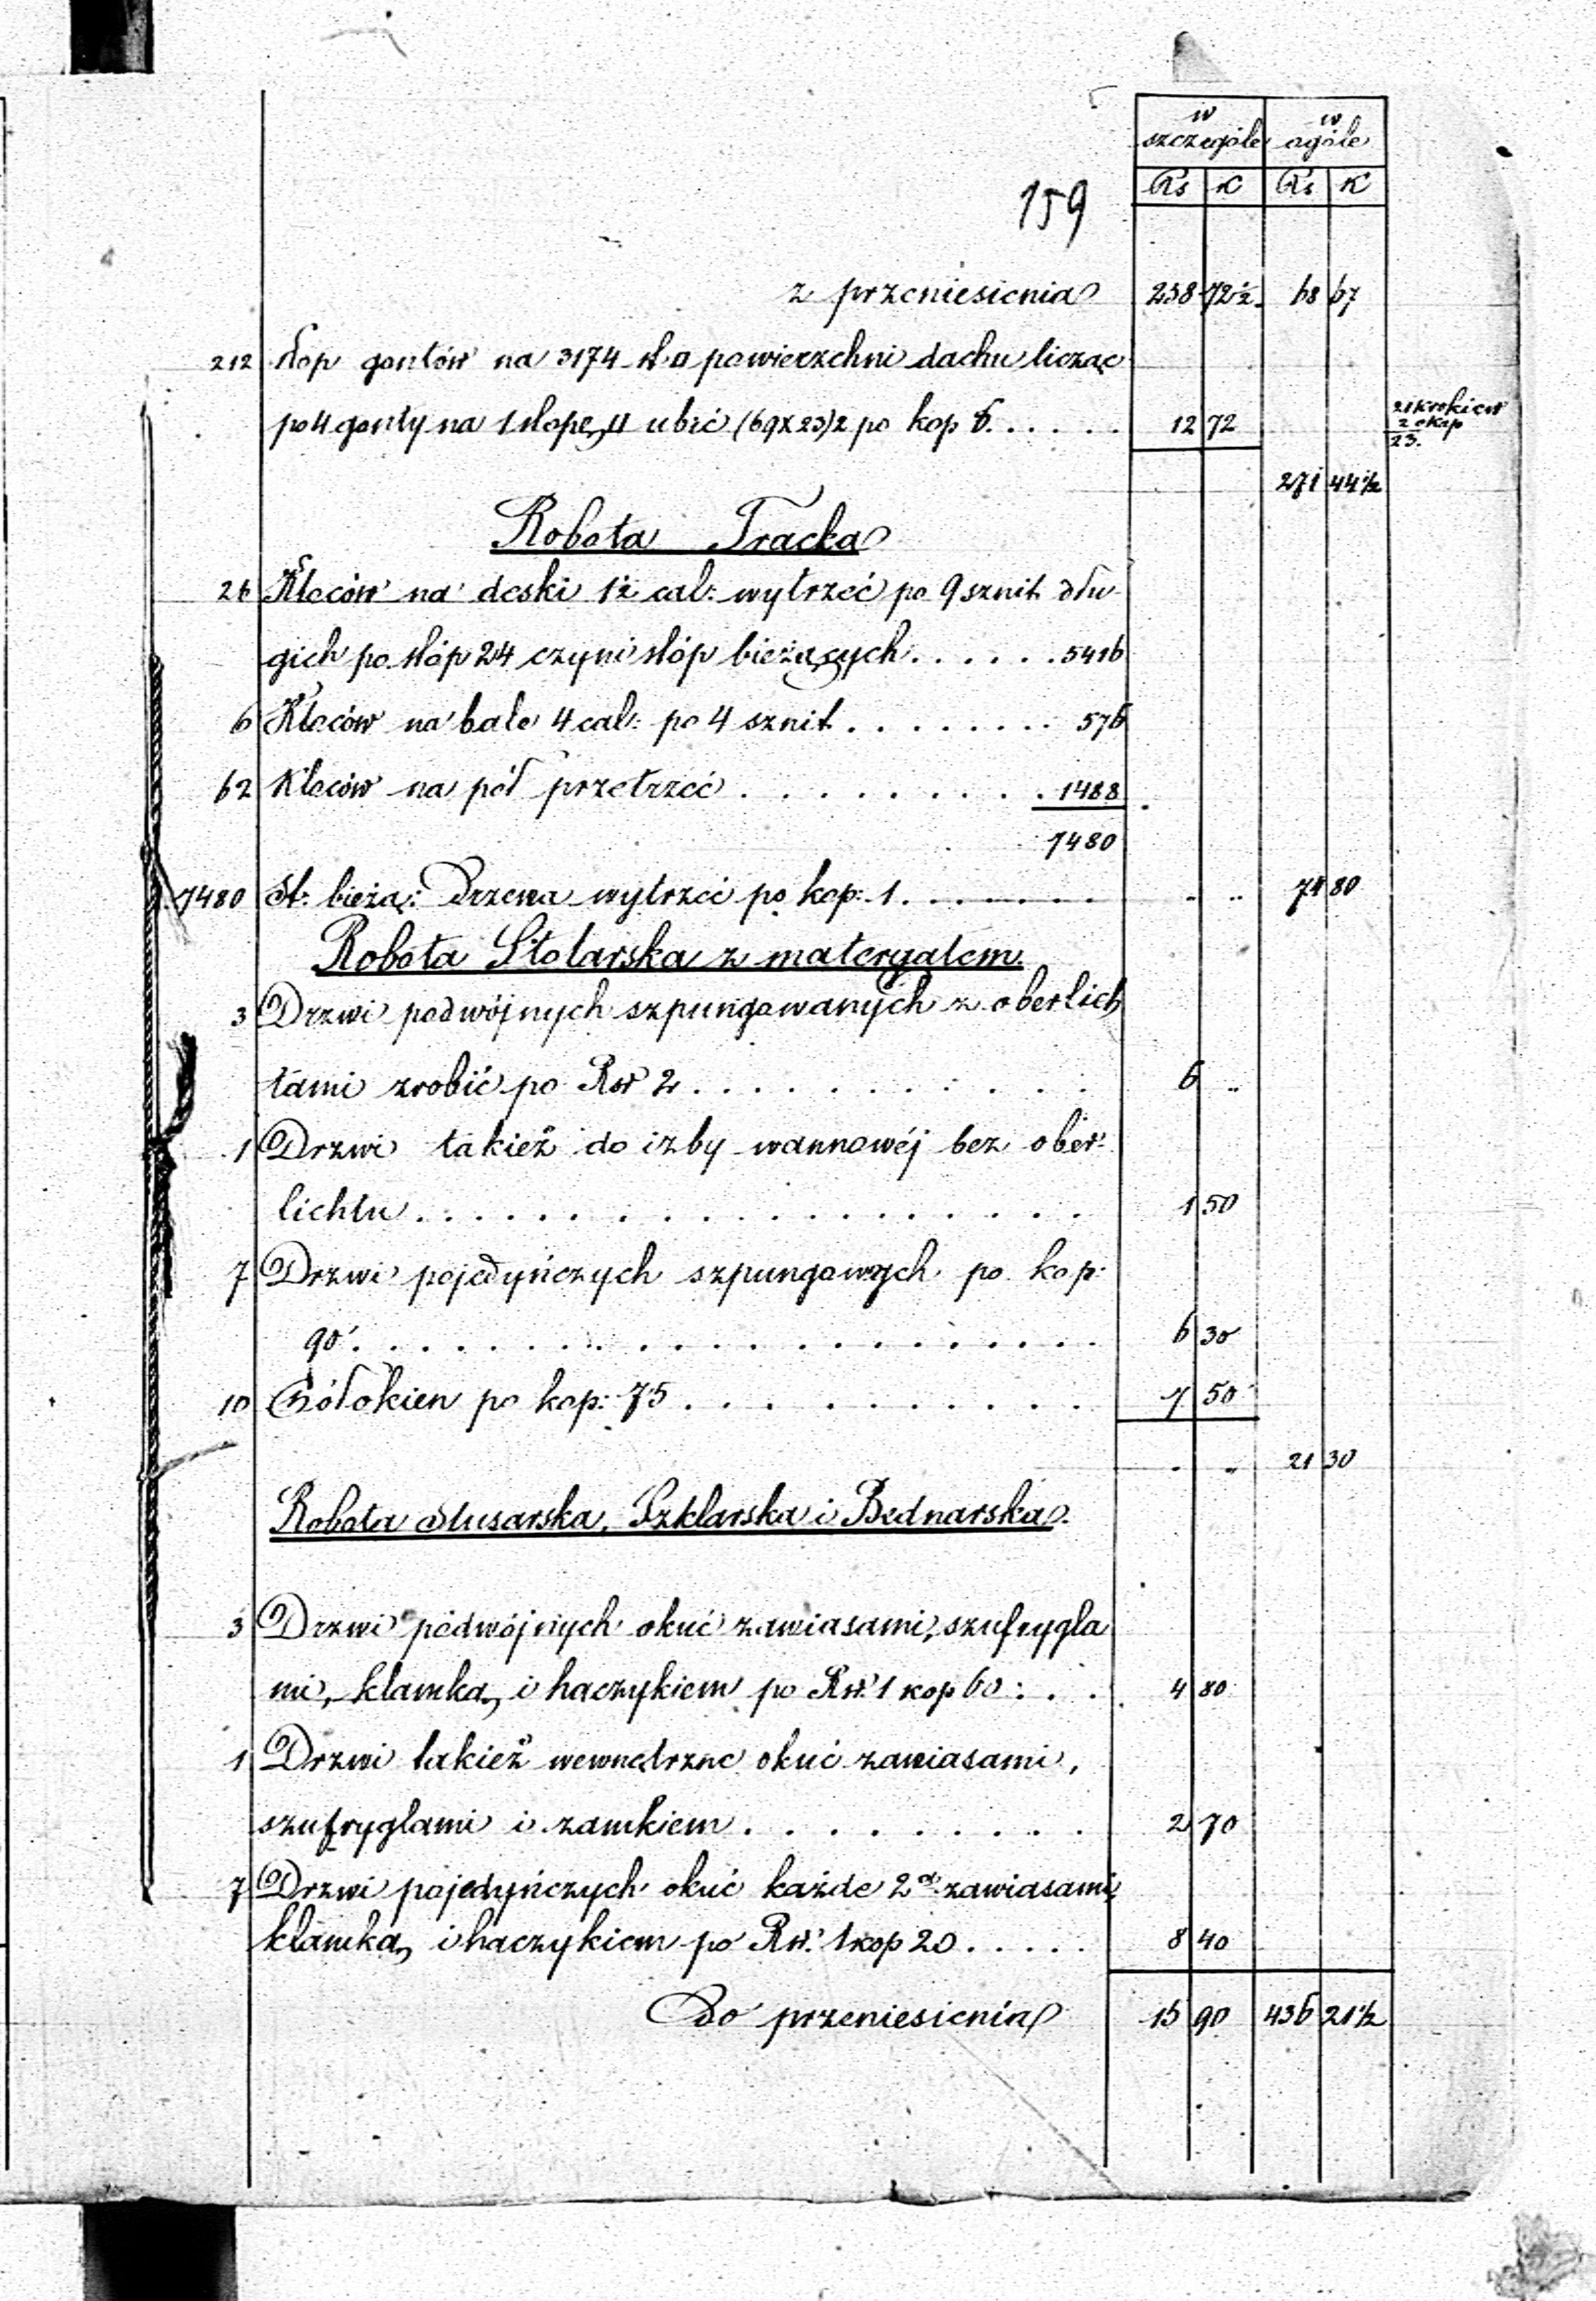 w szczególe w ogóle
Rs K Rs K
159
z przeniesienia 258 72½ 68 67
212 Kop gontów na 3174 st □ powierzchni dachu licząc
po 4 gonty na 1 stopę □ ubić (69x23)2 po kop 6. . . . . 12 72
21 krokiew
2 okap
23.
271 44½
Robota Tracka
26 Kloców na deski 1½ cal: wytrzeć po 9 sznit dłu
gich po stóp 24 czyni stóp bieżących . . . . . . 5416
6 Kloców na bale 4 cal: po 4 sznit . . . . . . . . 576
62 Kloców na pół przetrzeć . . . . . . . . . . 1488
7480
7480 St: bieżą: drzewa wytrzeć po kop: 1 . . . . . . . . - .. 74 80
Robota Stolarska z materyałem.
3 Drzwi podwójnych szpungowanych z oberlich
tami zrobić po Rsr 2 . . . . . . . . . . . 6 ..
1 Drzwi takież do izby wannowéj bez ober:
lichtu . . . . . . . . . . . . . . . . . . 1 50
7 Drzwi pojedyńczych szpungowych po kop:
90 . . . . . . . . . . . . . . . . . . . . 6 30
10 Gół okien po kop: 75 . . . . . . . . . . . 7 50
- .. 21 30
Robota Slusarska, Szklarska i Bednarska.
3 Drzwi podwójnych okuć zawiasami, szufrygla
mi, klamką i haczykiem po Rsr. 1 kop 60 : . . 4 80
1 Drzwi takież wewnętrzne okuć zawiasami,
szufryglami i zamkiem . . . . . . . . . . 2 70
7 Drzwi pojedyńczych okuć każde 2 zawiasami,
klamką i haczykiem po Rsr. 1 kop 20 . . . . . 8 40
Do przeniesienia 15 90 436 21½